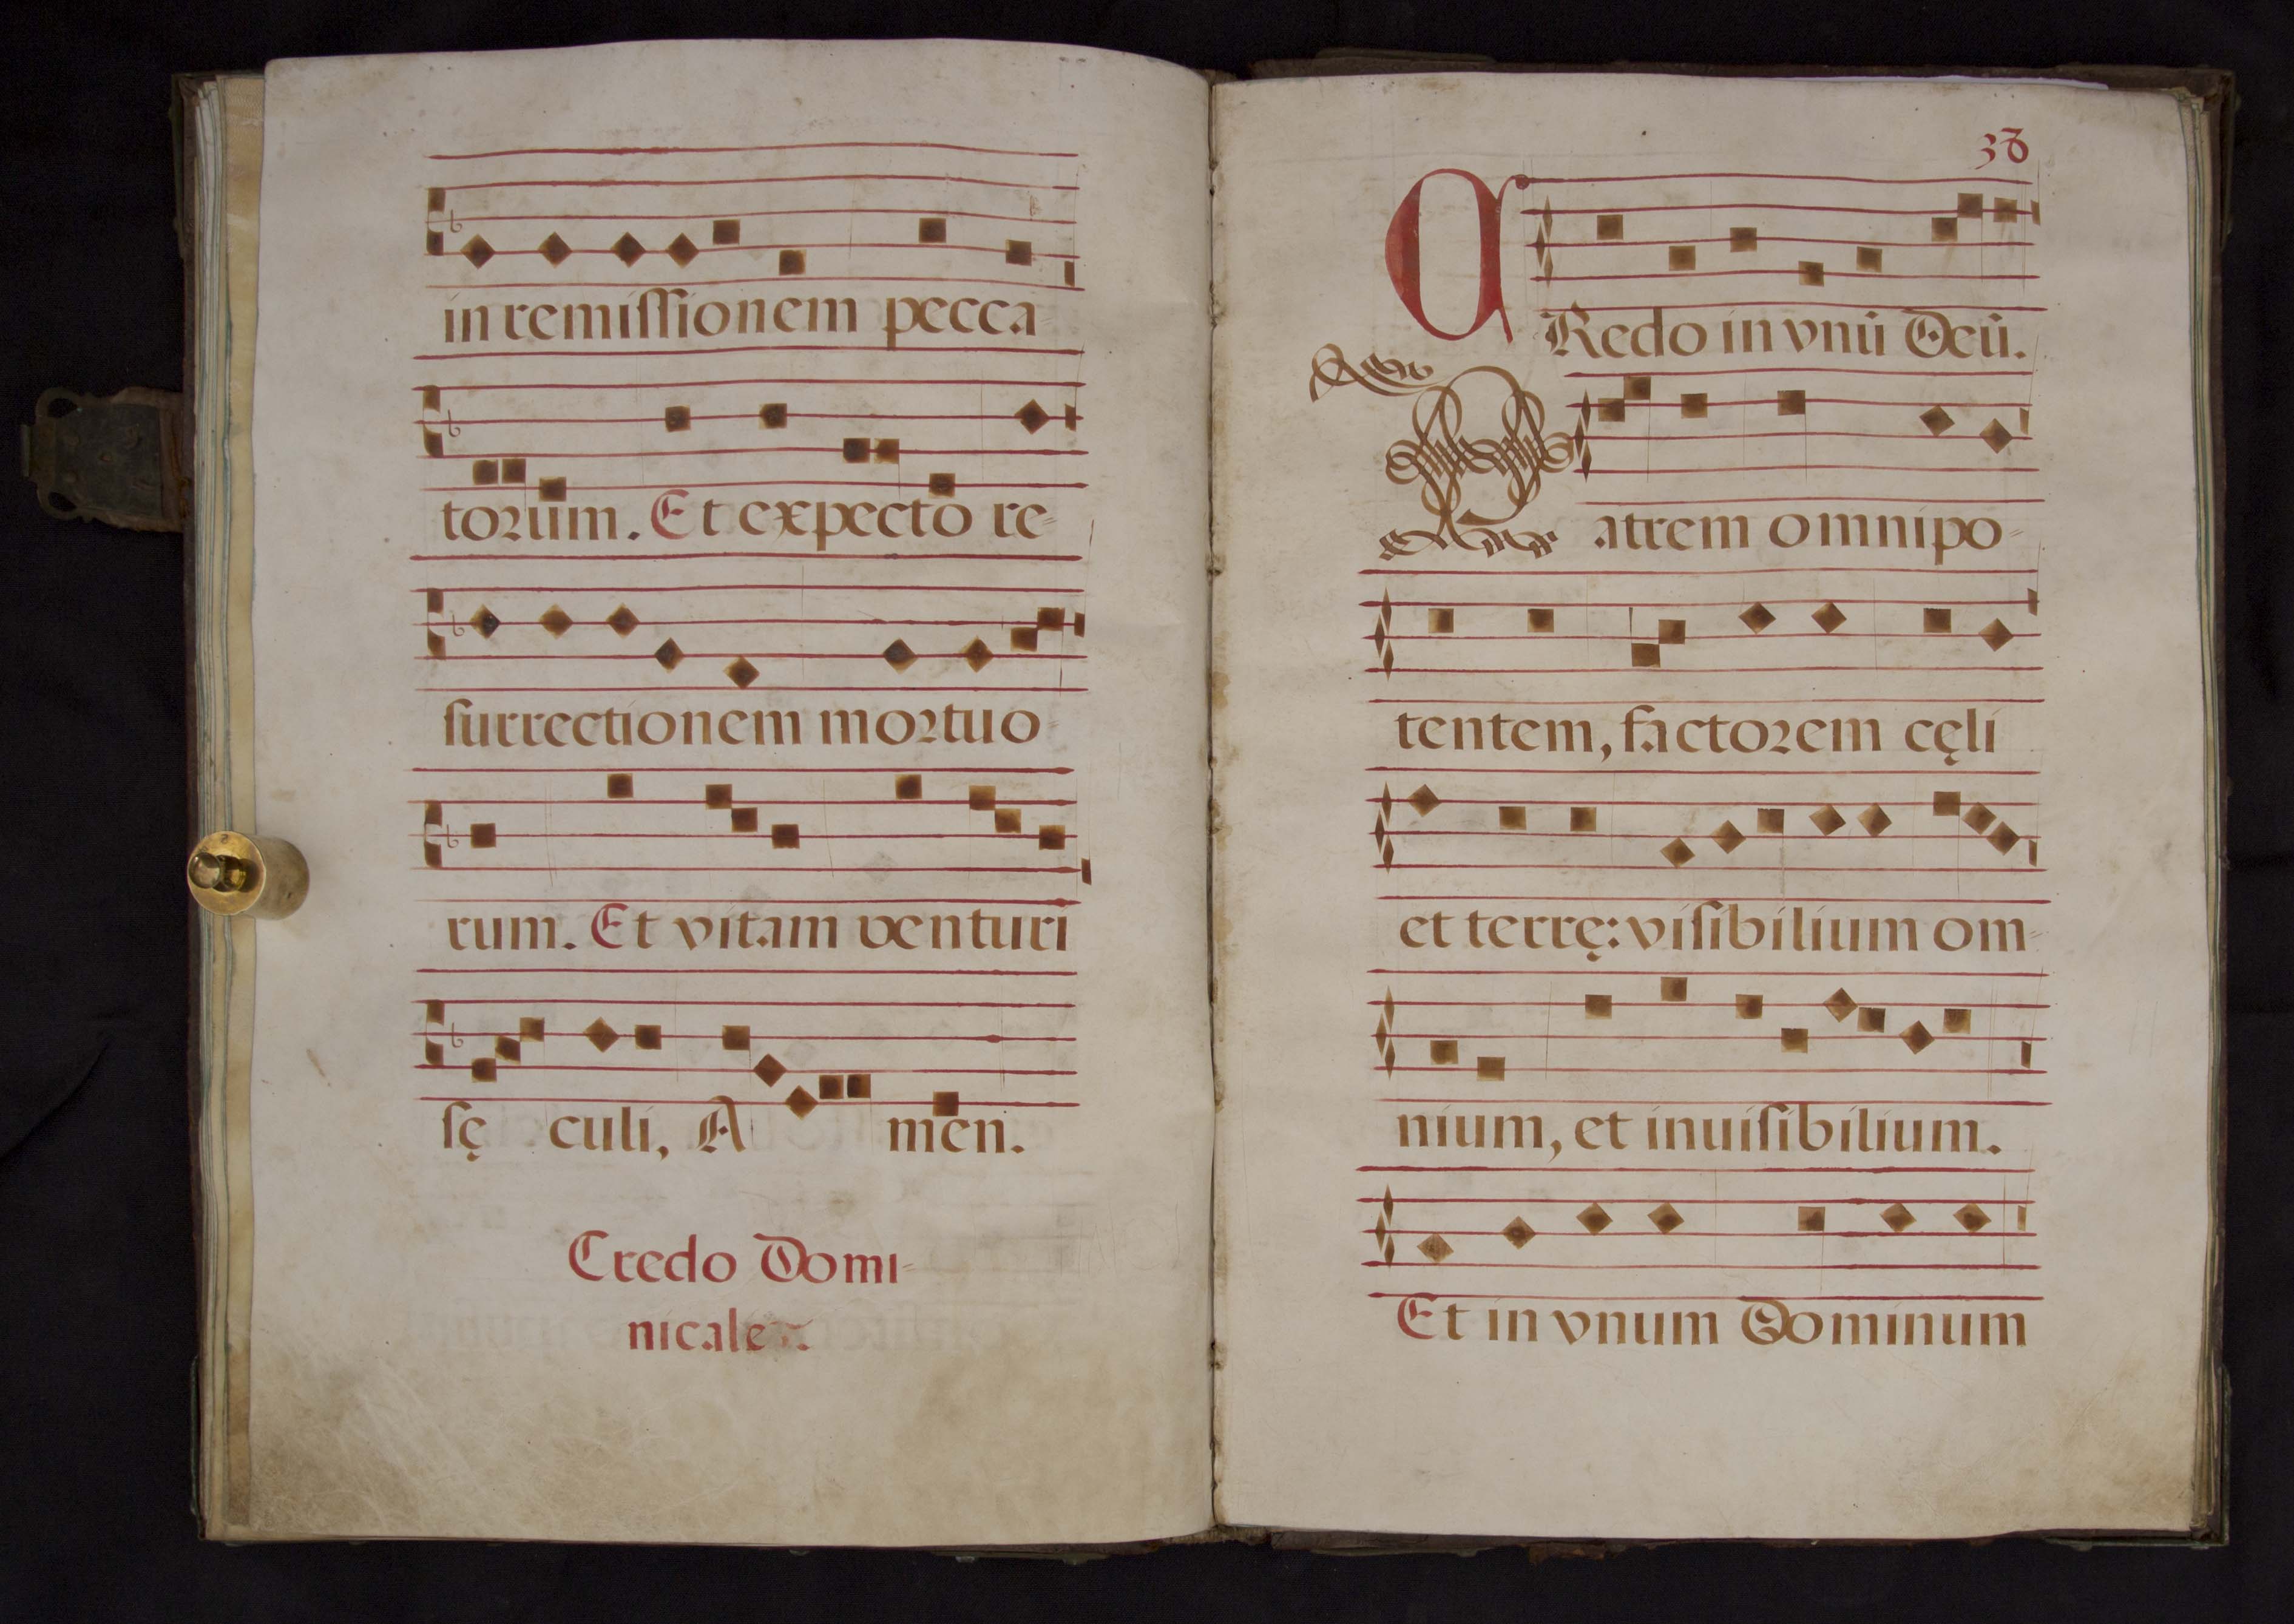 in remissionem pecca-
torum. Et expecto re-
surrectionem mortuo-
rum. Et vitam venturi
sę culi, A men.
Credo Domi-
nicale.
38
CRedo in vnũ Deũ.
Patrem omnipo-
tentem, factorem cęli
et terrę: visibilium om-
nium, et inuisibilium.
Et in vnum Dominum